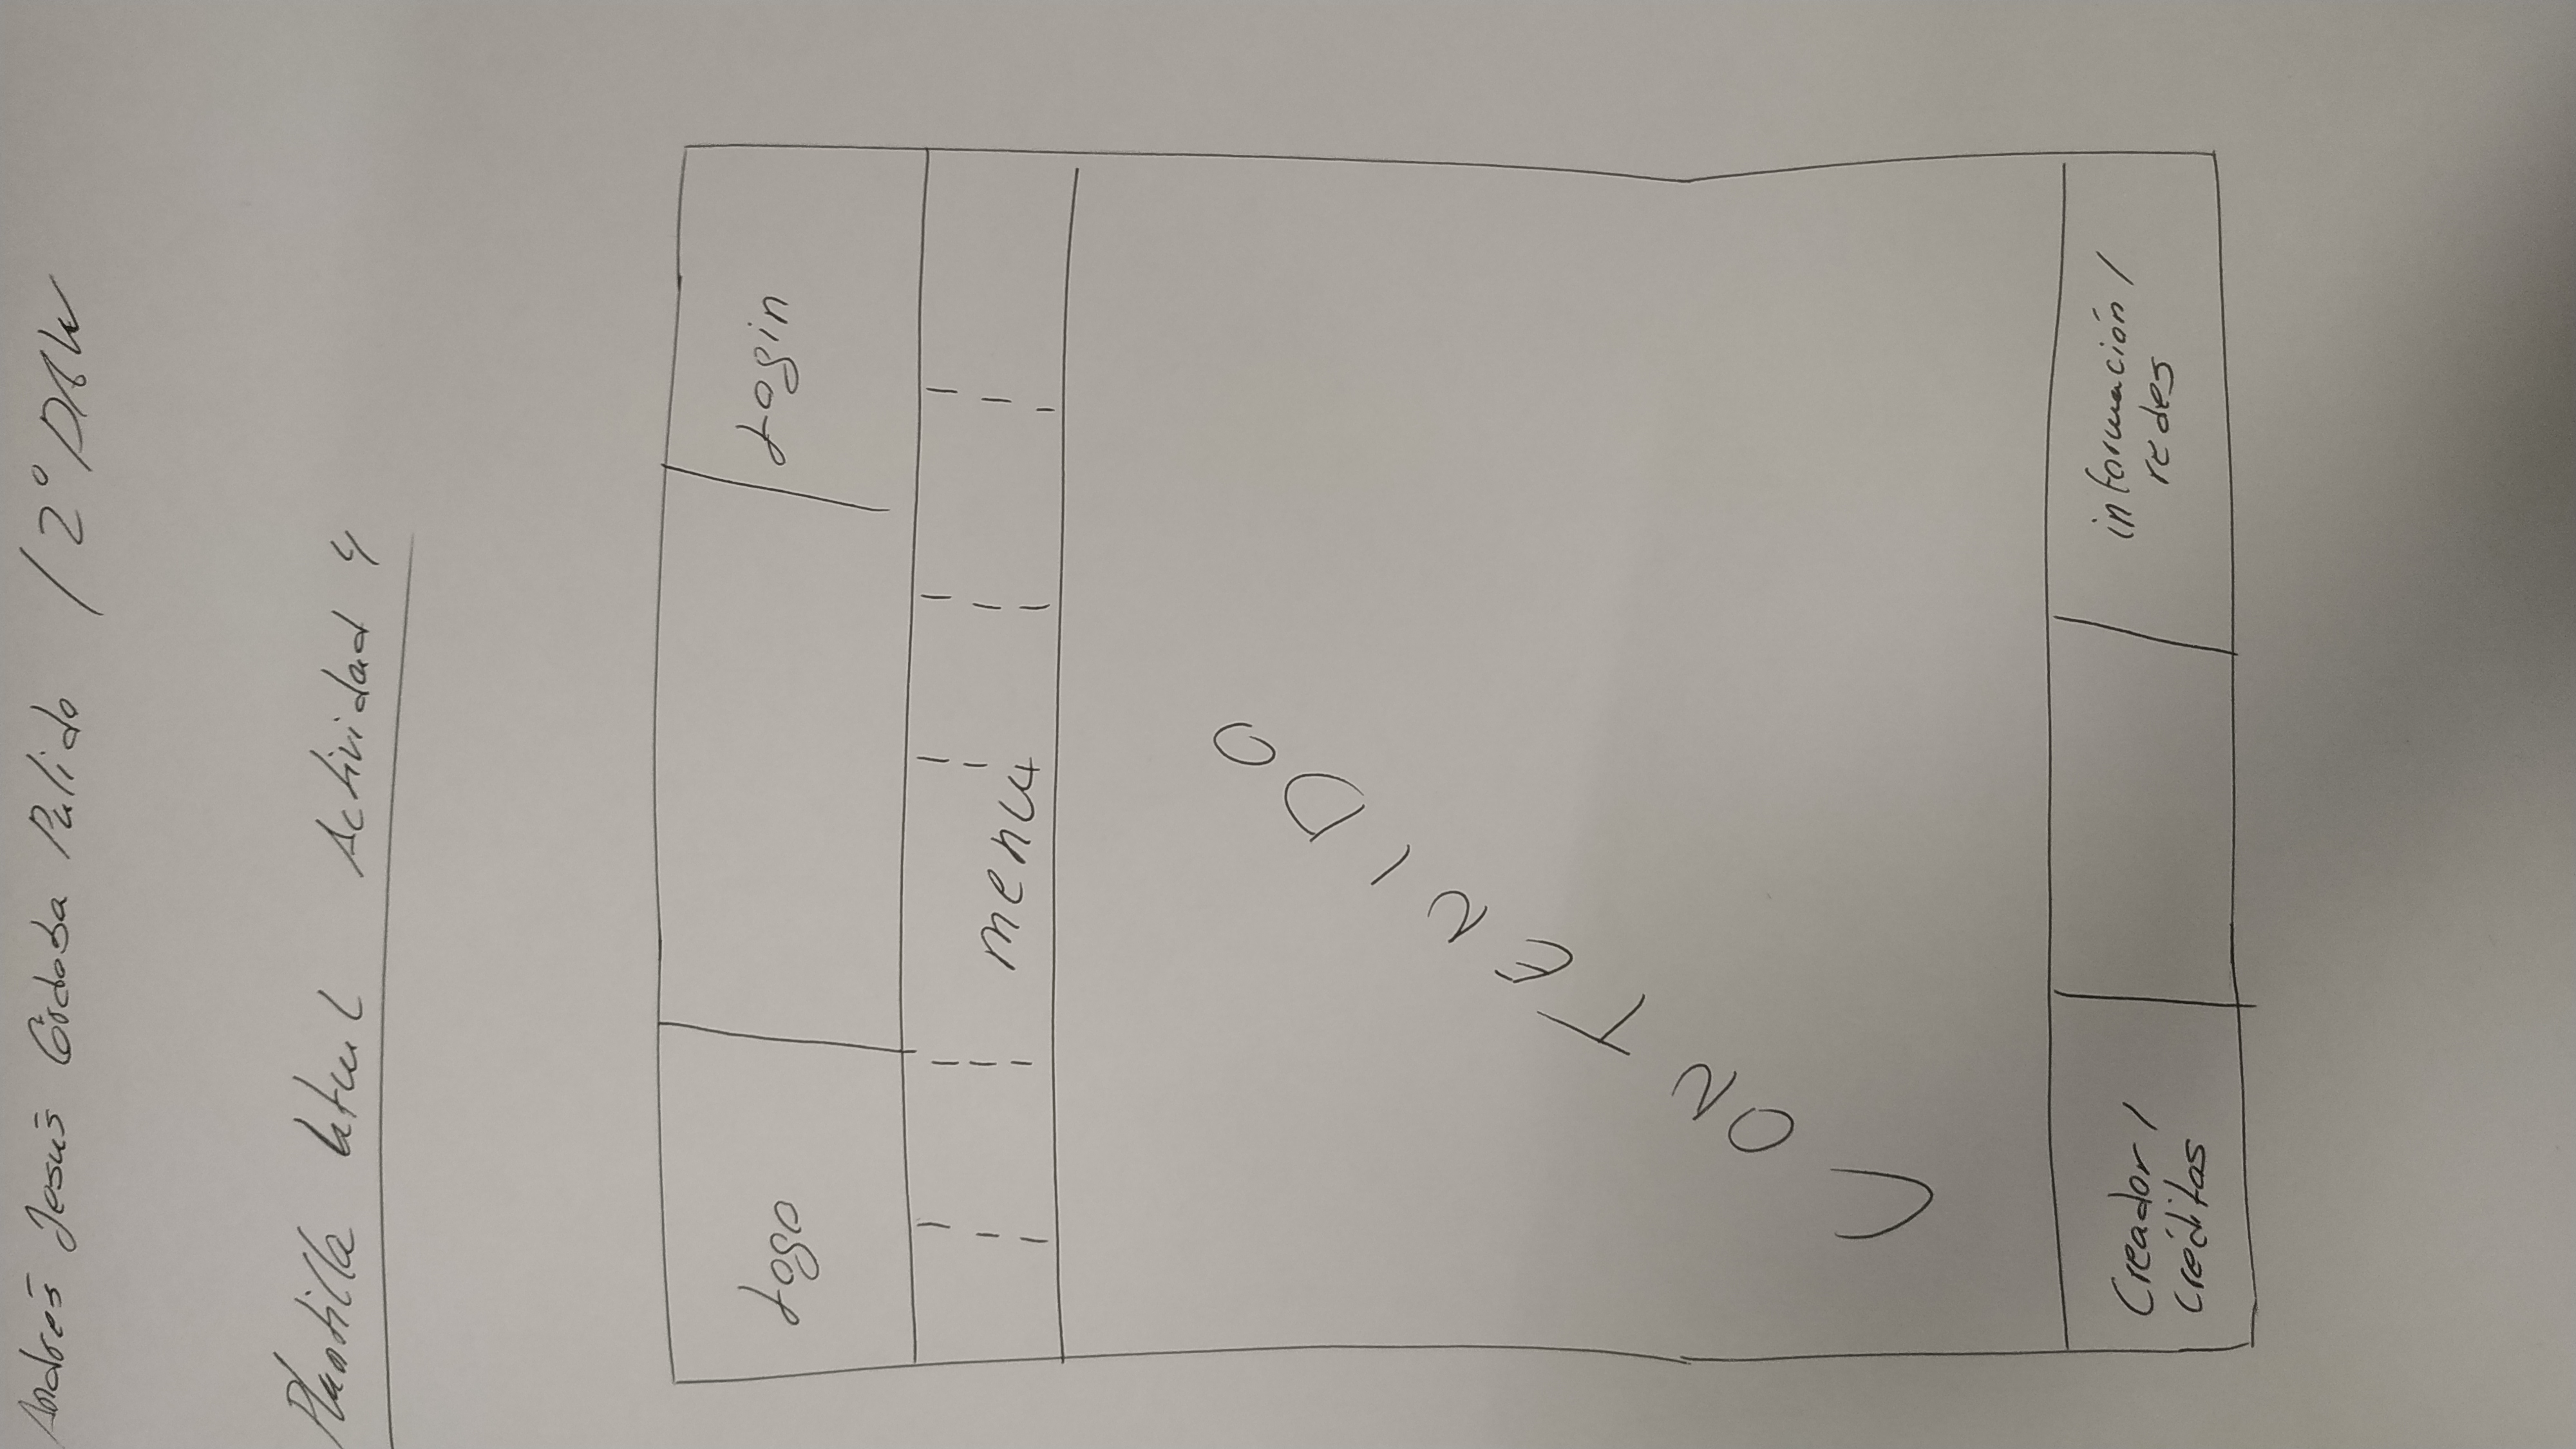 Andrés Jesús Córdoba Pulido / 2º DAW
Plantilla html Actividad 4
Logo
Login
menu
CONTENIDO
Creador /
créditos
información /
redes